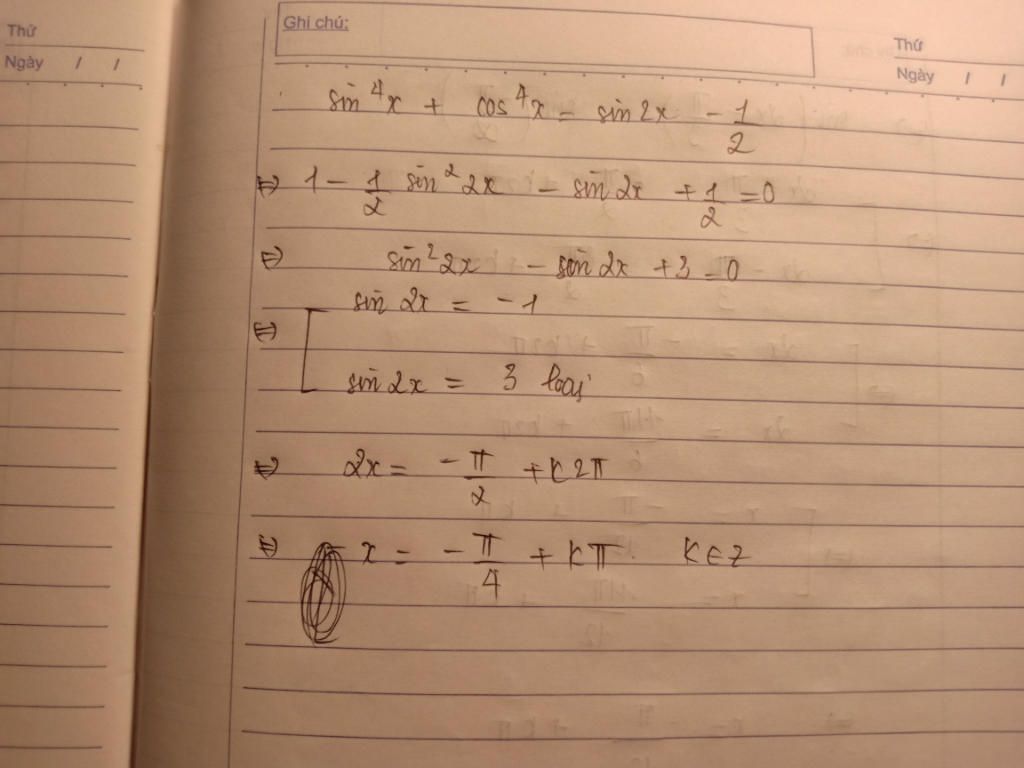 Thứ
Ngày / /
Ghi chú:
Thứ
Ngày / /
sin⁴x + cos⁴x = sin 2x - 1/2
⇔ 1 - 1/2 sin² 2x - sin 2x + 1/2 = 0
⇔ sin² 2x - sin 2x + 3 = 0
⇔ [ sin 2x = -1
sin 2x = 3 loại
⇔ 2x = -π/2 + k2π
⇔ x = -π/4 + kπ. k ∈ z